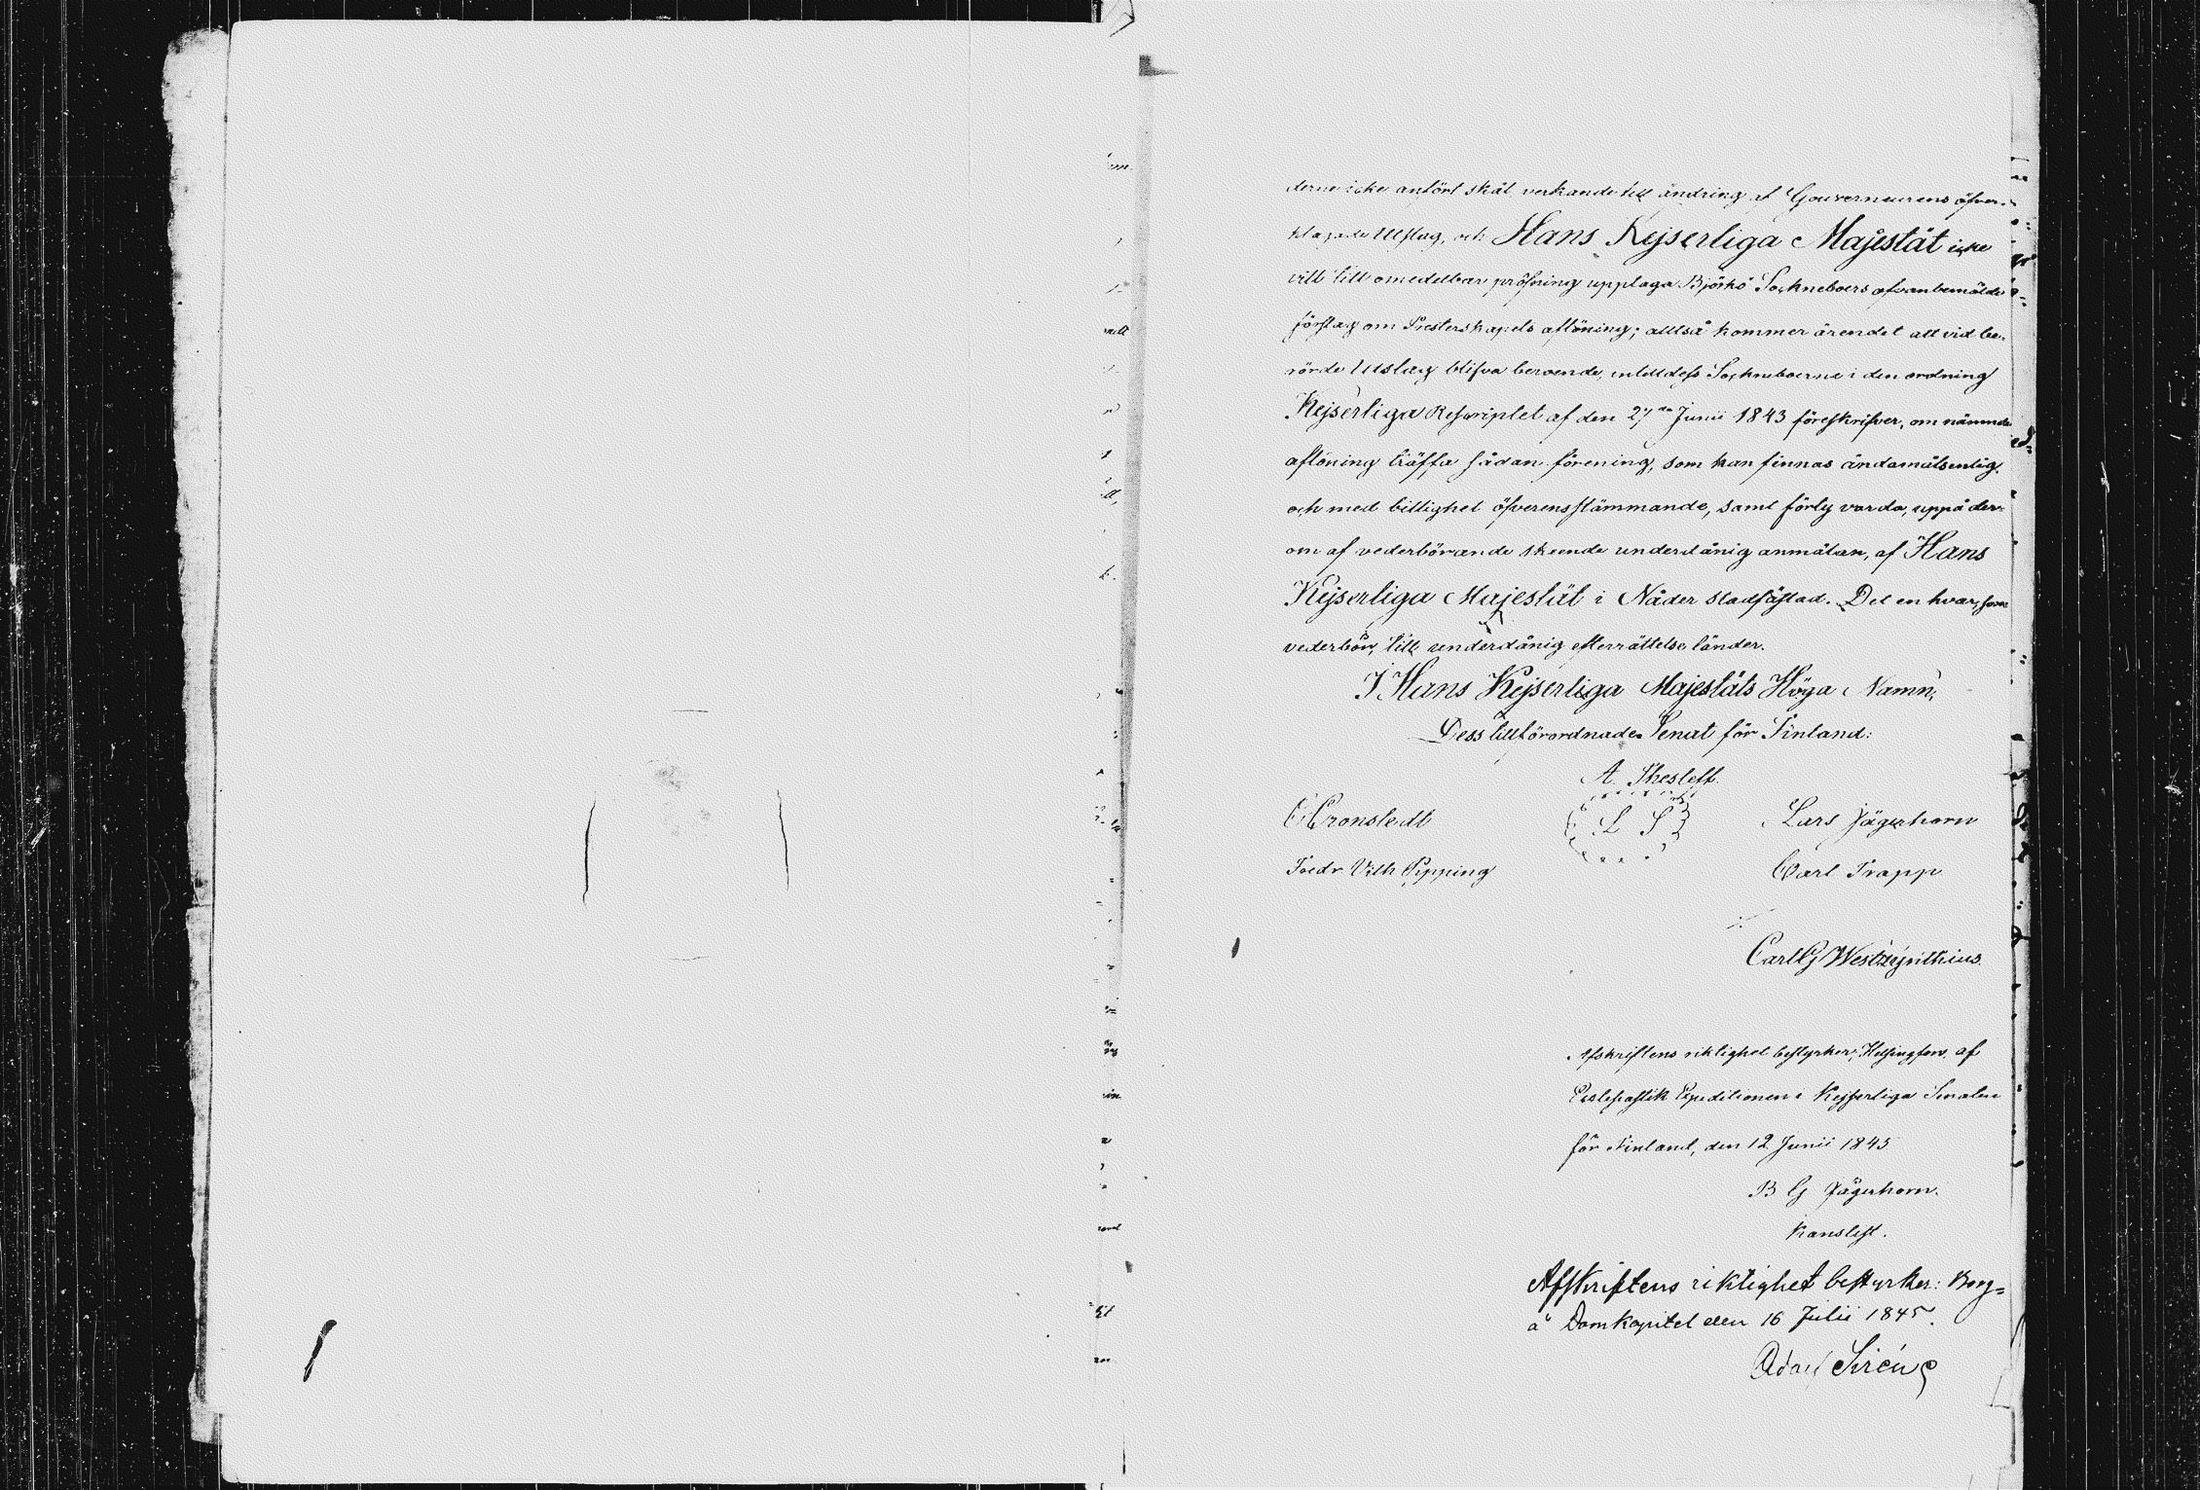 derne icke anfört skäl verkande till ändring af Gouverneurens öfver-
klagade Utslag, och Hans Kejserliga Majestät icke
vill till omedelbar pröfning upptaga Björkö Sockneboers ofvanbemälde
förslag om Presterskapets aflöning; alltså kommer ärendet att vid be-
rörde Utslag blifva beroende, intilldess Sockneboerne i den ordning
Kejserliga Rescriptet af den 27de Junii 1843 föreskrifver, om nämnde
aflöning träffa sådan förening, som kan finnas ändamålsenlig
och med billighet öfverensstämmande, samt förty varda, uppå der-
om af vederbörande skeende underdånig anmälan, af Hans
Kejserliga Majestät i Nåder stadfästad. Det en hvar, som
vederbör, till underdånig efterrättelse länder.
I Hans Kejserliga Majestäts Höga Namn,
Dess tillförordnade Senat för Finland:
A. Thesleff.
C Cronstedt L S Lars Jägerhorn
Fredr Vilh Pipping Carl Trapp
Carl G Westzynthius.
Afskriftens riktighet bestyrker; Helsingfors, af
Ecclesiastik Expeditionen i Kejserliga Senaten
för Finland, den 12 Junii 1845
B G Jägerhorn.
Kanslist.
Afskriftens riktighet bestyrker: Borg=
å Domkapitel den 16 Julii 1845.
Adolf Sirén